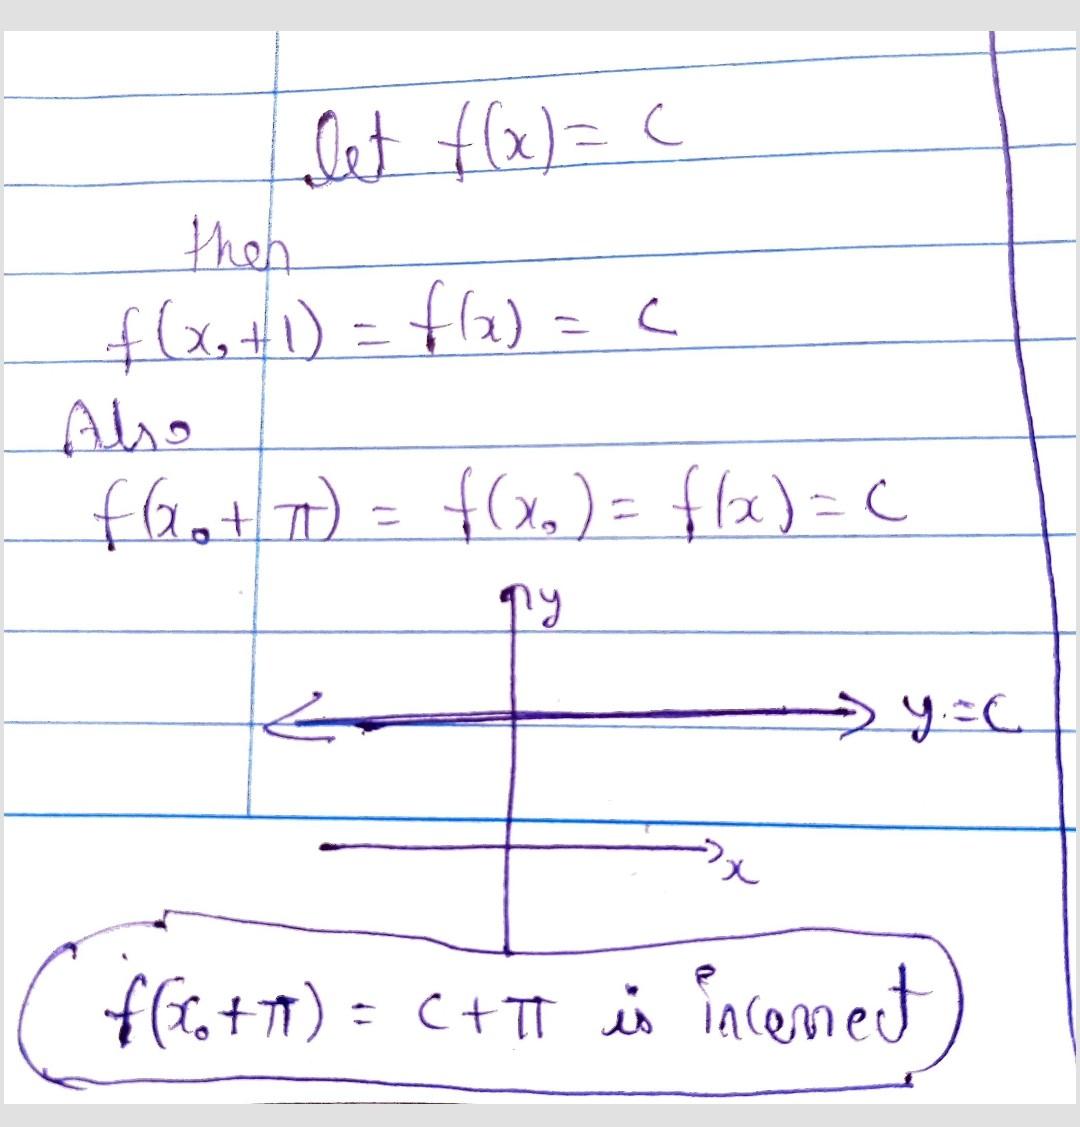 let f(x) = c
then
f(x₀+1) = f(x) = c
Also
f(x₀+π) = f(x₀) = f(x) = c
y
y=c
x
f(x₀+π) = c+π is incorrect